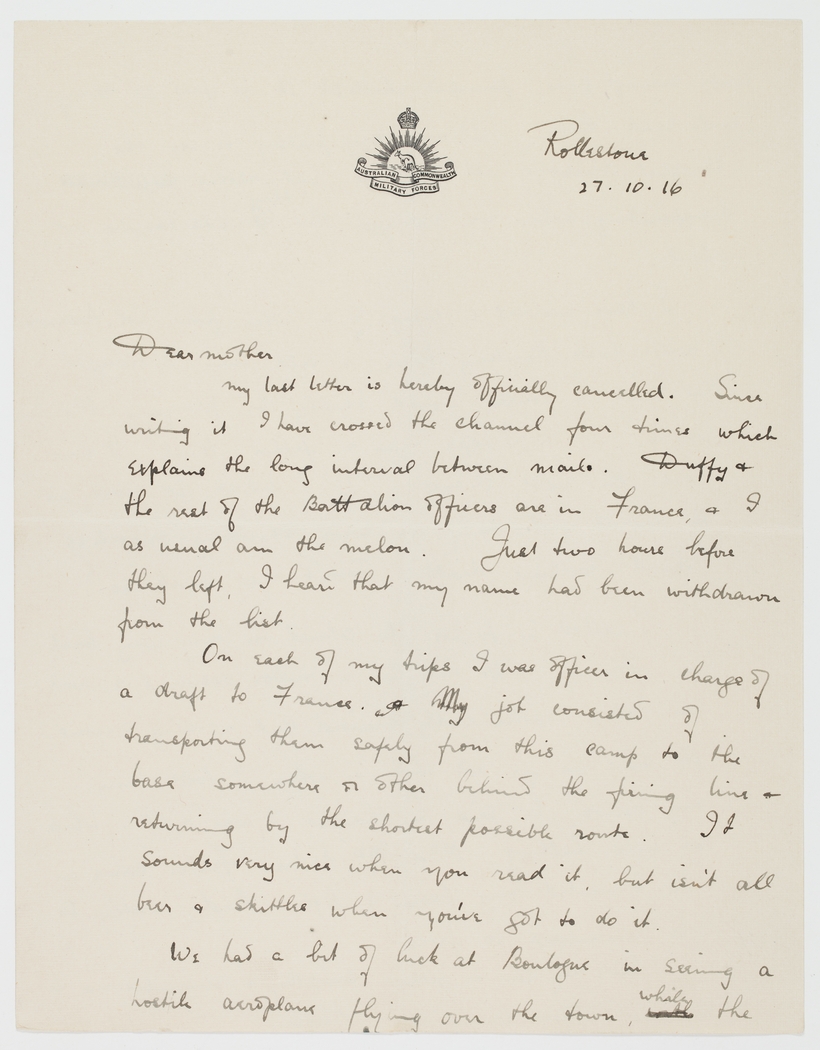 AUSTRALIAN COMMONWEALTH
MILITARY FORCES
Rollestone
27.10.16
Dear mother
my last letter is hereby officially cancelled. Since
writing it I have crossed the channel four times which
explains the long interval between mails. Duffy &
the rest of the Battalion officers are in France, & I
as usual am the melon. Just two hours before
they left, I heard that my name had been withdrawn
from the list.
On each of my trips I was officer in charge of
a draft to France. My job consisted of
transporting them safely from this camp to the
base somewhere or other behind the firing line &
returning by the shortest possible route. It
sounds very nice when you read it, but isn't all
beer & skittles when you've got to do it.
We had a bit of luck at Boulogne in seeing a
hostile aeroplane flying over the town, while the